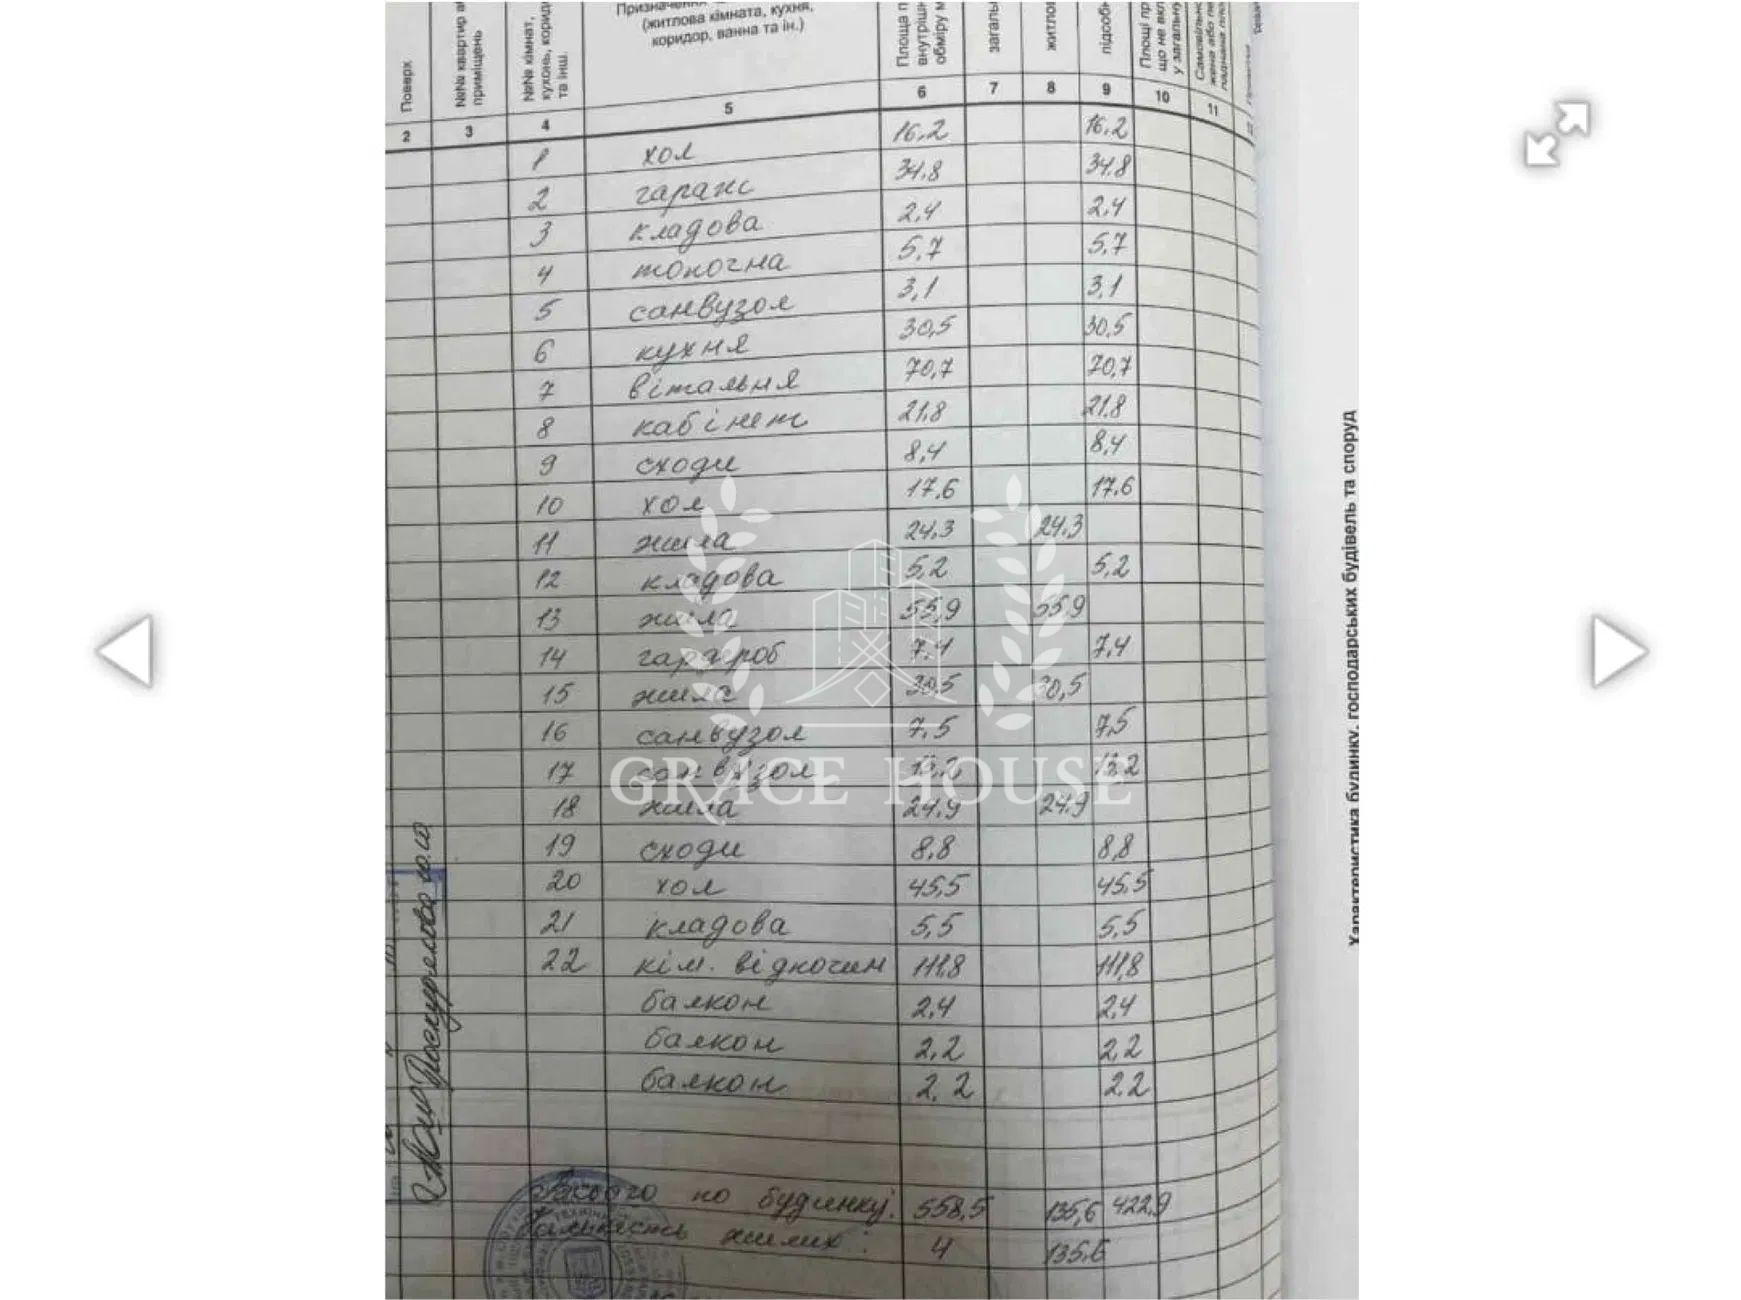 Призначення
(житлова кімната, кухня,
коридор, ванна та ін.)
Поверх
№№ квартир
приміщень
№№ кімнат,
кухонь,
та інш.
Площа
внутріш
обміру
загаль
житлов
підсоб
Площі
що не
у загальну
2 3 4 5 6 7 8 9 10 11
1 хол 16,2 16,2
2 гараж 34,8 34,8
3 кладова 2,4 2,4
4 топочна 5,7 5,7
5 санвузол 3,1 3,1
6 кухня 30,5 30,5
7 вітальня 70,7 70,7
8 кабінет 21,8 21,8
9 сходи 8,4 8,4
10 хол 17,6 17,6
11 жила 24,3 24,3
12 кладова 5,2 5,2
13 жила 55,9 55,9
14 гардероб 7,4 7,4
15 жила 30,5 30,5
16 санвузол 7,5 7,5
17 санвузол 13,2 13,2
18 жила 24,9 24,9
19 сходи 8,8 8,8
20 хол 45,5 45,5
21 кладова 5,5 5,5
22 кім. відпочин 111,8 111,8
балкон 2,4 2,4
балкон 2,2 2,2
балкон 2,2 2,2
по будинку. 558,5 135,6 422,9
Кількість жилих: 4 135,6
GRACE HOUSE
Характеристика будинку, господарських будівель та споруд